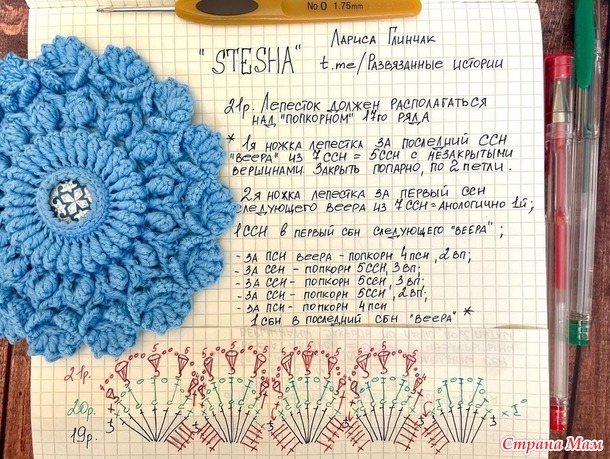 No 0 1.75mm
"STESHA"
Лариса Глинчак
t.me/Развязанные истории
21р. Лепесток должен располагаться
над "попкорном" 17го ряда
* 1я ножка лепестка за последний ССН
"веера" из 7ССН = 5ССН с незакрытыми
вершинами. Закрыть попарно, по 2 петли.
2я ножка лепестка за первый ССН
следующего веера из 7ССН = аналогично 1й;
1ССН в первый сбн следующего "веера" ;
- за ПСН веера - попкорн 4ПСН, 2ВП;
- за ССН - попкорн 5ССН, 3ВП;
- за ССН - попкорн 5ССН, 3ВП;
- за ССН - попкорн 5ССН, 2ВП;
- за ПСН - попкорн 4ПСН
1СБН в последний СБН "веера" *
21р.
20р.
19р.
Страна Мам